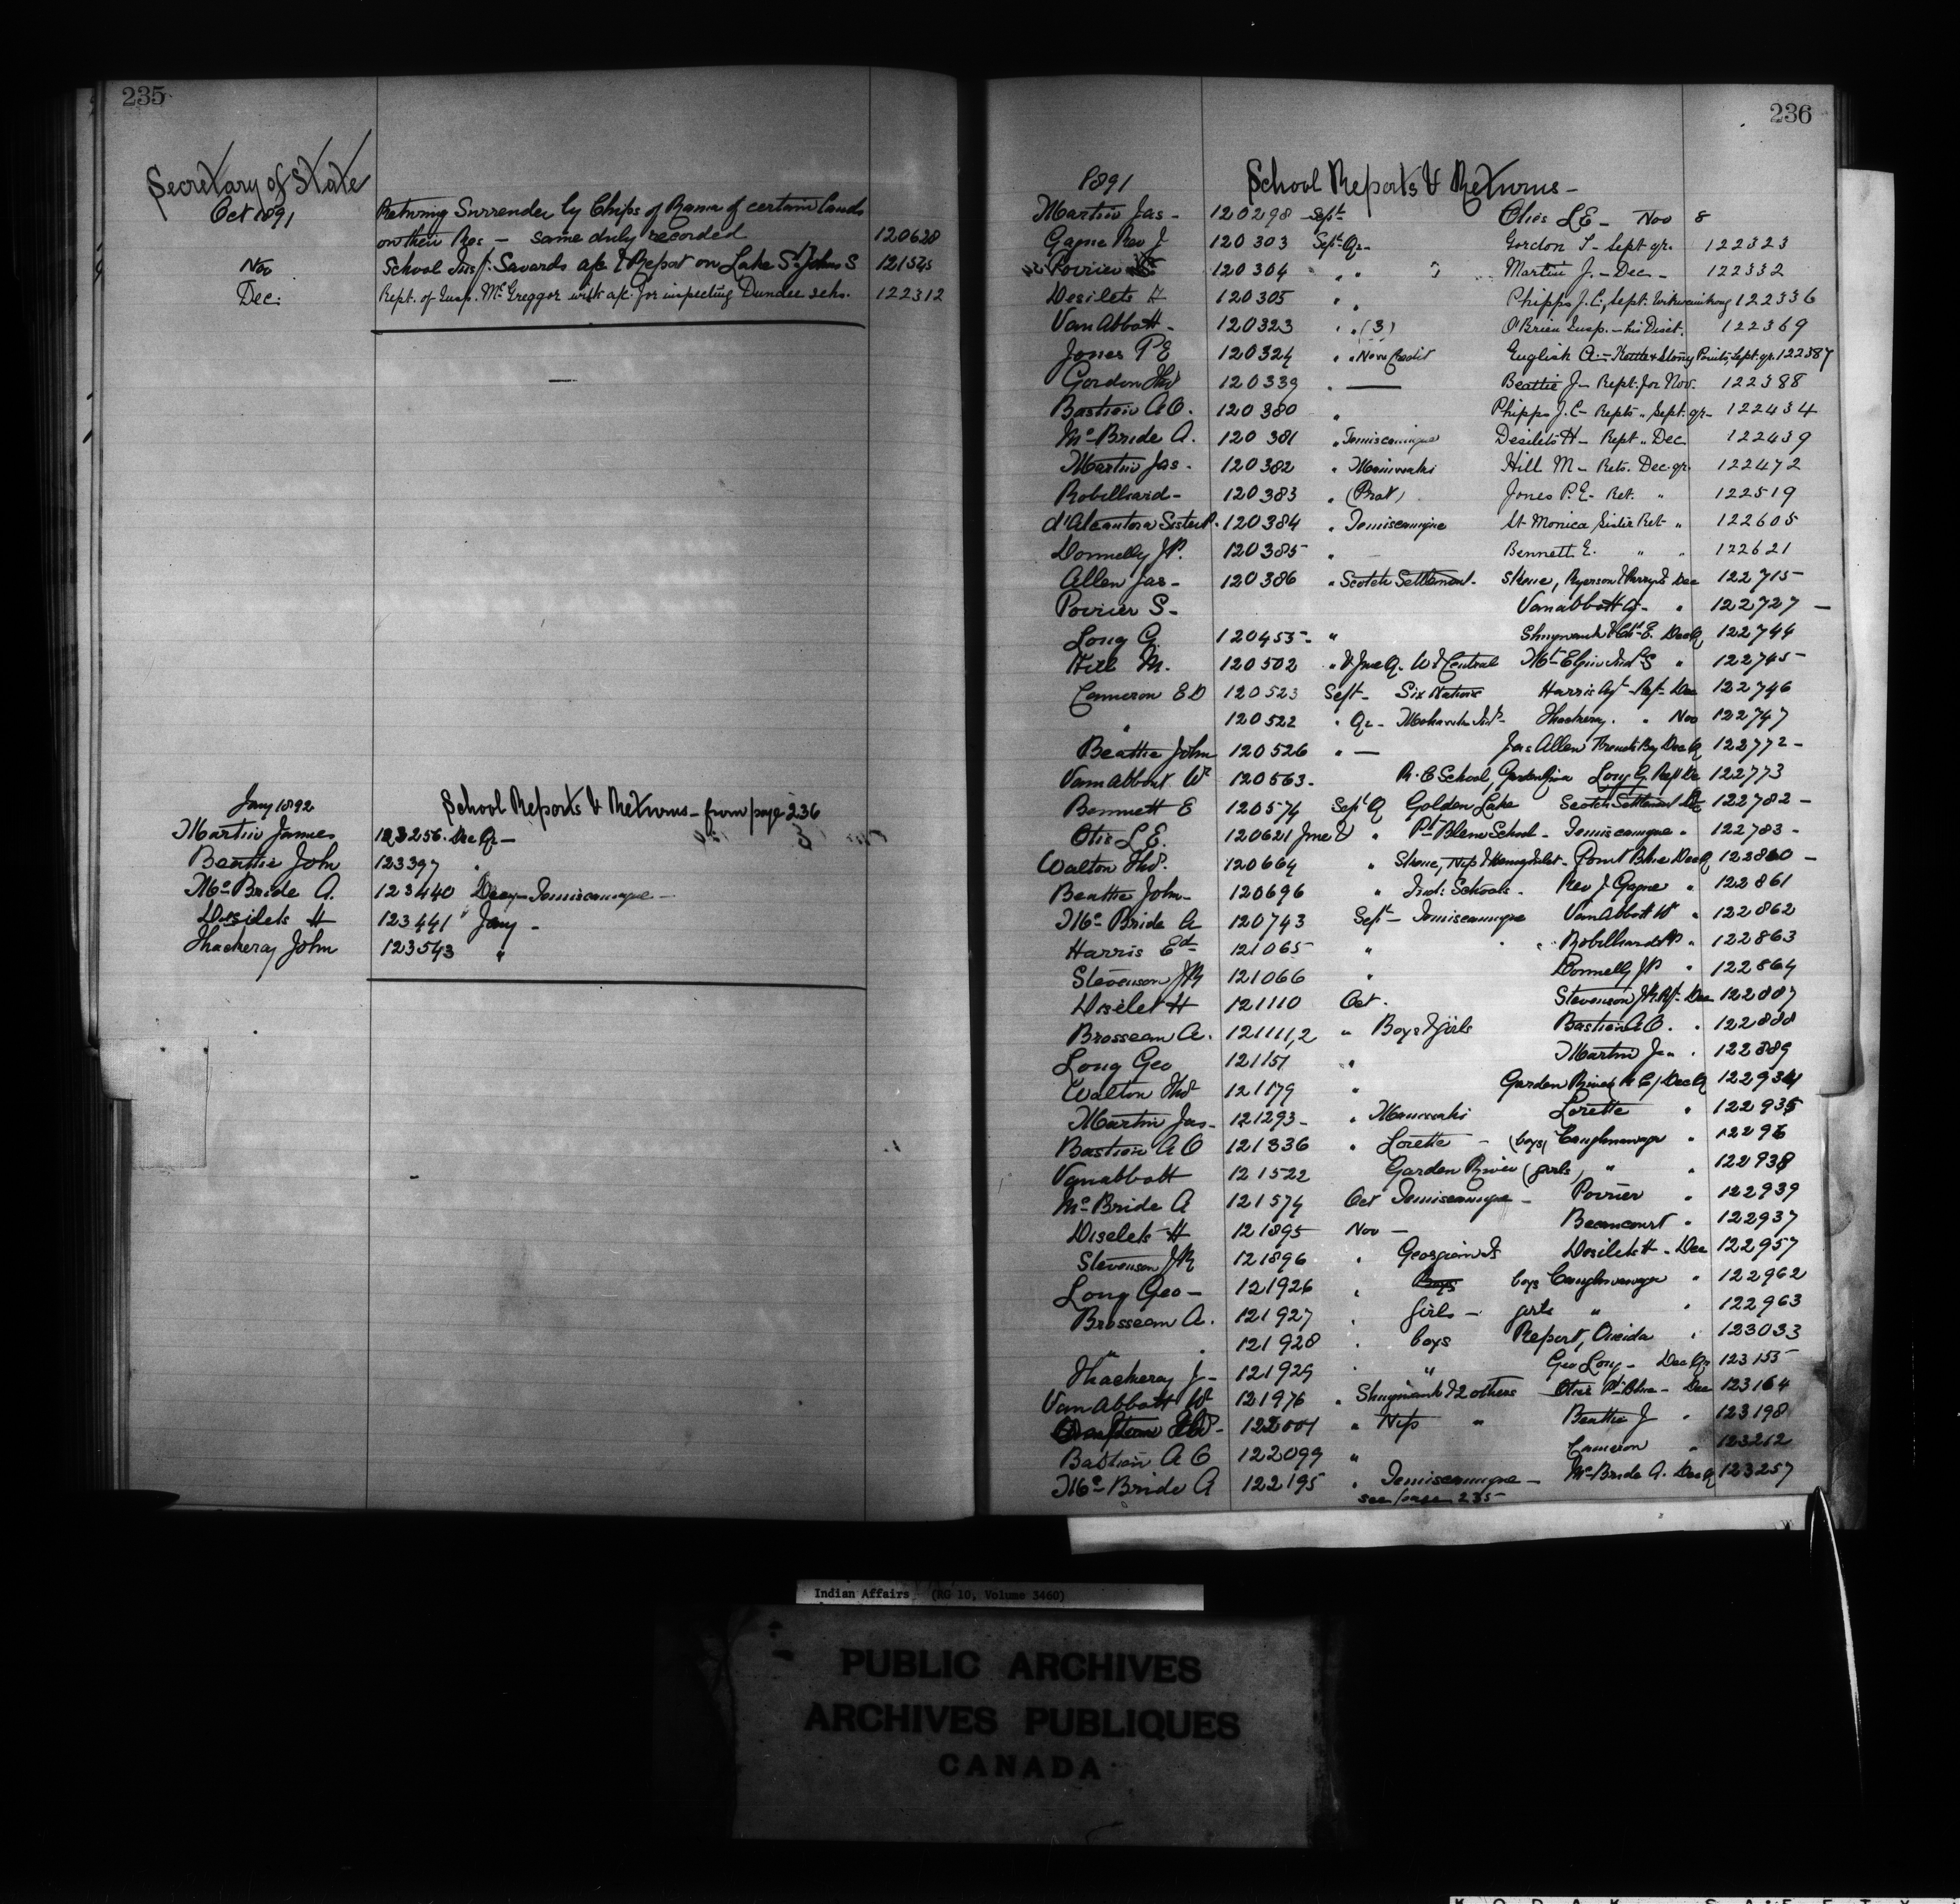 235
Secretary of State
Oct 1891
Returning Surrender by Chiefs of Rama of certain lands
on their Res — same duly recorded 120628
Nov School Insp. Savards a/c & Report on Lake St Johns S 121545
Dec. Rept. of Insp. McGreggor with a/c for inspecting Dundee schs. 122312
Jany 1892 School Reports & Returns — from page 236
Martin James 123256 Dec Qr —
Beattie John 123397 "
McBride A. 123440 Decr — Temiscamingue —
Desilets H 123441 Jany —
Thackeray John 123543 "
236
1891 School Reports & Returns —
Martin Jas — 120298 Sept. Otis L E — Nov 8
Gagne Rev J 120303 Sept. Qr — Gordon T — Sept qr. 122323
Poirier 120304 " " Martin J. — Dec — 122332
Desilets H 120305 " Phipps J.C., Sept. Wikwemikong 122336
Van Abbott — 120323 " (3) O'Brien Insp. — his Dist. 122369
Jones P E 120324 " " New Credit English A. — Kettle & Stony Points, Sept. qr. 122387
Gordon Thos 120339 " — Beattie J — Rept. for Nov. 122388
Bastien A O. 120380 " Phipps J. C — Repts " Sept. qr — 122434
McBride A. 120381 " Temiscamingue Desilets H — Rept " Dec 122439
Martin Jas. 120382 " Maniwaki Hill M — Rets. Dec. qr. 122472
Robillard — 120383 " (Prot) Jones P. E — Ret. " 122519
d'Alcantora Sister P. 120384 " Temiscamingue St. Monica Sister Ret — " 122605
Donnelly J P. 120385 " — Bennett E. " " 122621
Allen Jas — 120386 " Scotch Settlement. Skene, Ryerson & Parry I Dec 122715 —
Poirier S — Vanabbott W — " 122727 —
Long G. 120455 — " Shingwauk & Ch. E. Dec Q 122744
Hill M. 120502 " & Jne Q. W & Central Mt. Elgin Ind. S " 122745 —
Cameron E D 120523 Sept — Six Nations Harris Agt — Rept — Dec 122746
" 120522 " Qr — Mohawk Inst — Thackeray. " Nov 122747
Beattie John 120526 " — Jas Allen Dec Q 122772 —
Vann Abbott W 120563 — R. C School, Garden River Long G. Rept Dec 122773
Bennett E 120574 Sept Q Golden Lake Scotch Settlement Dec 122782 —
Otis L E. 120621 Jne & " Pt. Bleue School — Temiscamingue " 122783 —
Walton Thos. 120664 " Skene, Nap & Henvy Inlet — Point Blue Dec Q 122860 —
Beattie John — 120696 " Ind: Schools — Rev J. Gagne " 122861
McBride A 120743 Sept — Temiscamingue VanAbbott W " 122862
Harris Ed 121065 " Robillard " 122863
Stevenson J R 121066 " Donnelly J P " 122864
Diselet H 121110 Oct. Stevenson J R. Rpt — Dec 122887
Brosseau A. 121111,2 " Boys & Girls Bastien A O. " 122888
Long Geo 121151 " Martin Jas " 122889
Walton Thos 121179 " Garden River R C / Dec Q 122934
Martin Jas — 121293 — " Maniwaki Lorette " 122935
Bastien A O 121336 " Lorette — (boys) Caughnawaga " 12296
Vanabbott 121522 Garden River (girls) " " 122938
McBride A 121574 Oct Temiscamingue — Poirier " 122939
Diselets H 121895 Nov — Becancourt " 122937
Stevenson J R 121896 " Georgina I Desilets H — Dec 122957
Long Geo — 121926 " Boys boys Caughnawaga " 122962
Brosseau A. 121927 " Girls — girls " " 122963
" 121928 " boys Report, Oneida " 123033
Thackeray J — 121929 " " Geo Long — Dec Qr 123155
Van Abbott W 121976 " Shingwauk & 2 others Otis Pt. Blue — Dec 123164
122001 " Nip " Beattie J " 123198
Bastien A O 122099 " Cameron " 123212
McBride A 122195 " Temiscamingue — McBride A. Dec Q 123257
see page 235 —
Indian Affairs (RG 10, Volume 3460)
PUBLIC ARCHIVES
ARCHIVES PUBLIQUES
CANADA